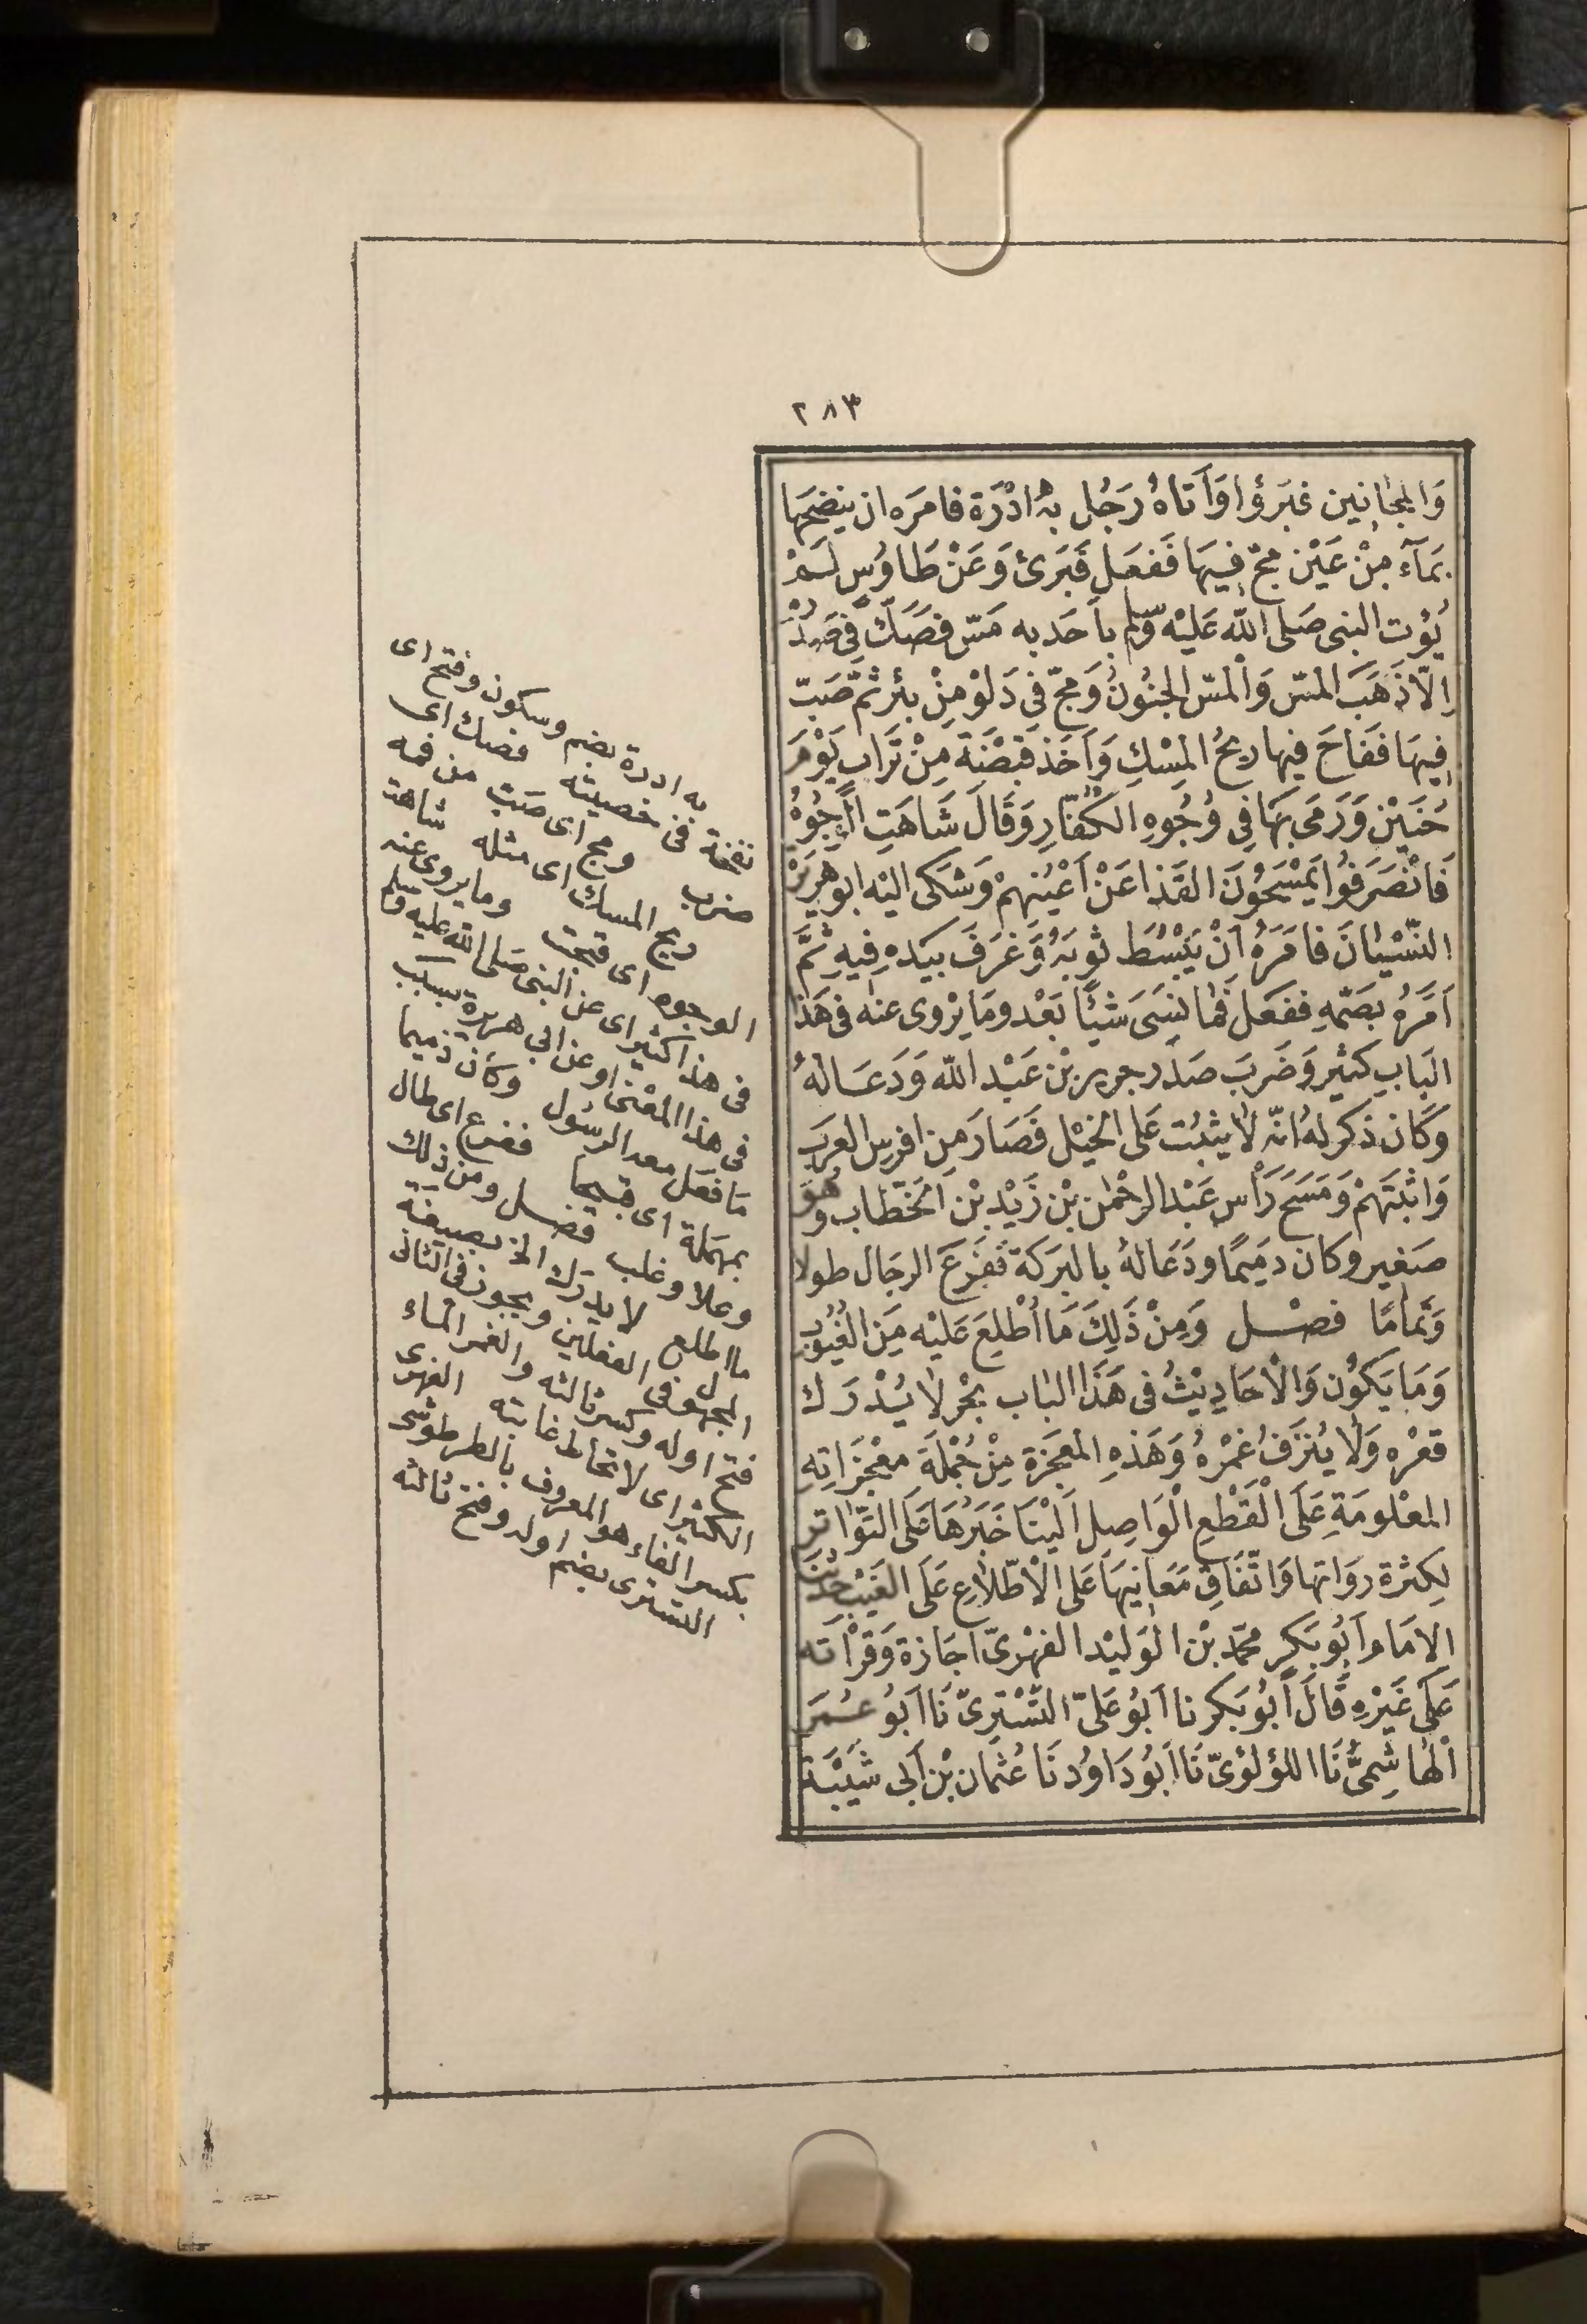 ٢٨٣
وَالمجَانِين غبَرؤا وَاَتاهُ رَجُل بهُ ادْرَة فامَره ان ينضحَهَا
بمَآء مِنْ عَيْن مجّ فيهَا فَفعَل فَبَرئ وَعَنْ طَاوُس لَمْ
يُؤت النبى صَلى الله عَليْه وَسّلم بأحَد به مَسّ فصَكّ فى صَدْرُه
اِلّا ذَهَبَ المسّ وَالمسّ الجنُونُ وَمجّ فى دَلوْ مِنْ بئر ثمّ صَبّ
فيهَا فَفَاحَ فيها ريحُ المِسْكِ وَاَخَذ قبْضَة مِنْ ترَاب يَوْمَ
حُنَيْن وَرَمَى بهَا فِى وُجُوهِ الكُفّار وَقَالَ شَاهَتِ الوُجُوهُ
فَانْصَرَفُوا يمْسَحُونَ القَذا عَنْ اَعْيُنهمْ وَشَكى اليْه ابوهريَرْة
النّسْيَانَ فامَرَهُ اَنْ يَبْسُط ثوبَهُ وَغرَفَ بيَدهِ فيهِ ثمَّ
اَمَرَهُ بضَمّهِ ففعَل فمَا نسَىَ شيْئًا بَعْد ومَا يرْوى عنْه فى هَذا
البَاب كثير وَضرَبَ صَدر جرير بْن عَبْد الله وَدَعَا لهُ
وَكَان ذكر لهُ انّه لا يثبُت عَلى الخيْل فَصَارَ مِن افرس العرَب
وَاثبَتَهمْ وَمَسَحَ رَأس عَبْد الرحْمٰن بْن زَيْد بْن الخطّاب وهُوَ
صَغير وكان دميمًا ودَعَا لهُ بالبرَكة ففرَعَ الرجَال طولا
وَتمَامًا فصْل وَمِنْ ذَلِكَ مَا اُطْلِعَ عَليْه مِنَ الغُيُوب
وَمَا يَكُون وَالاَحَادِيْثُ فى هَذَا البَاب بحْر لا يُدْرَك
قعْره وَلا يُنزَفُ غمْرهُ وَهَذهِ المعجَزة مِنْ جُمْلَة معْجزَاتهِ
المعْلومَةِ عَلَى الْقَطْعِ الْوَاصِل اَليْنَا خَبَرُهَا عَلَى التّوَاتر
لِكثرة روَاتهَا وَاتّفَاقِ مَعَانيهَا عَلى الاطّلاَعِ عَلَى الغَيْب حدثنَا
الامَام اَبُو بَكر محمّد بْن الوَليْد الفهْرىّ اجَازة وَقرْأته
عَلَى غيَرْهِ قَالَ اَبُو بَكر نا ابُو عَلىّ التّسْتَرىّ نَا ابُو عُمَر
الهَاشِمىُّ نَا اللؤلؤىّ نَا ابُو دَاوُد نَا عُثمَان بْن اَبى شَيْبَة
به ادرة بضم وسكون وفتح اى
نفخة فى خصيته فصك اى
ضرب ومج اى صَبّ من فمه
ريح المسك اى مثله شاهت
الوجوه اى قبحت وما يروى عنه
فى هذا اكثير اى عن النبى صَلى الله عليه وسَلم
فى هذا المعْنى او عن ابى هريرة بسبب
مَا فعَل معه الرسُول وكان ذميما
بمهمَلة اى قبيحا ففرع اى طال
وعلا وغلب فصل ومن ذلك
ما اطلع لا يدرَك الخ بصيغَة
المجهول فى الفعلين ويجوز فى الثانى
فتح اوله وكسر ثالثه والغمر المَاء
الكثير اى لا تحَاط غايته الفهرى
بكسر الفاء هو المعروف بالطرطوشى
التسترى بضم اوله وفتح ثالثه